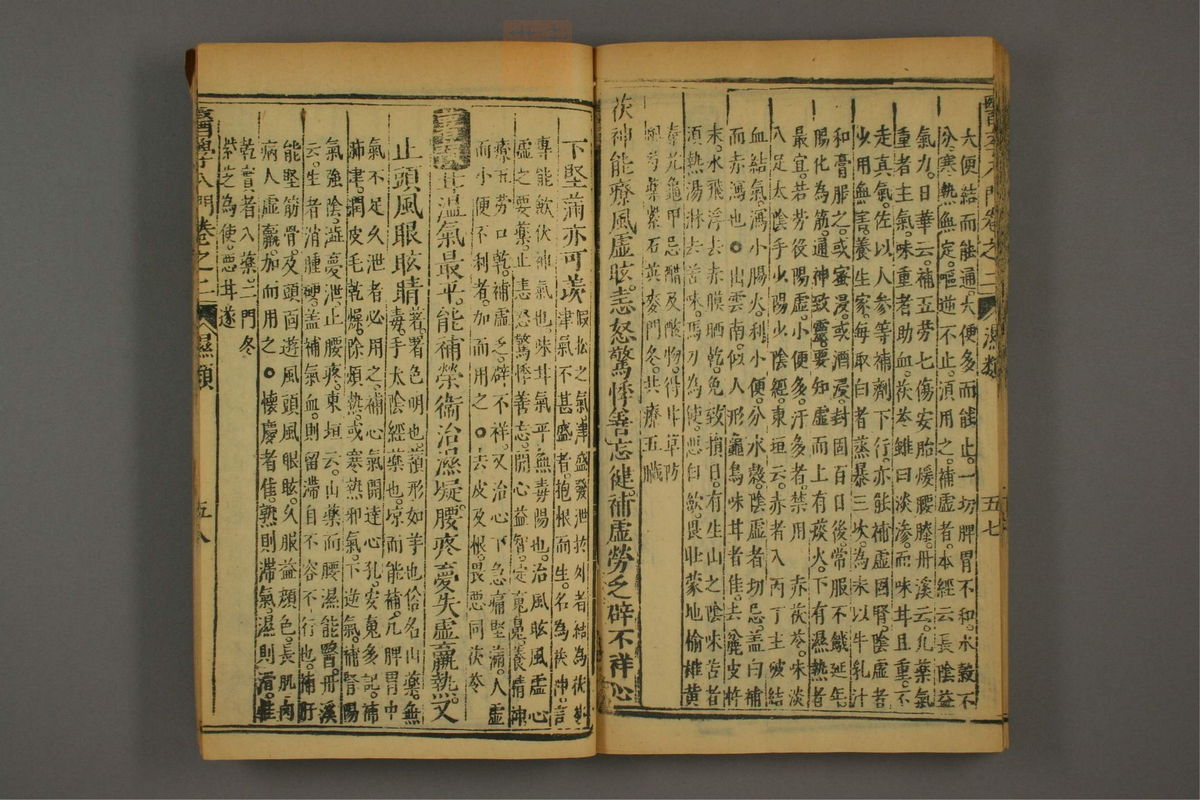 醫學入門卷之二 濕類 五七
大便結而能通。大便多而能止。一切脾胃不和。水穀不
分。寒熱無定。嘔逆不止。須用之。補虛者。本經云。長陰益
氣力。日華云。補五勞七傷安胎煖腰膝。丹溪云。凡藥氣
重者主氣。味重者助血。茯苓雖曰淡滲。而味甘且重。不
走真氣。佐以人參等補劑下行。亦能補虛固腎。陰虛者
少用無害。養生家。每取白者蒸暴三次。為末以牛乳汁
和膏服之。或蜜浸。或酒浸。封固百日後。常服不饑延年。
腸化為筋。通神致靈。要知虛而上有痰火。下有濕熱者
最宜。若勞役陽虛。小便多。汗多者。禁用 赤茯苓。味淡
入足太陰手少陽少陰經。東垣云。赤者入丙丁主破結
血結氣。瀉小腸火。利小便。分水穀。陰虛者切忌。蓋白補
而赤瀉也○出雲南。似人形龜鳥味甘者佳。去麄皮杵
末。水飛浮去赤膜晒乾。免致損目。有生山之陰味苦者
須熱湯淋去苦味。馬刃為使。惡白歛。畏壯蒙地榆雄黃
秦艽龜甲。忌醋及酸物。得甘草防
風芍藥紫石英麥門冬。共療五臟
茯神能療風虛眩。恚怒驚悸善忘健。補虛勞乏辟不祥心
下堅滿亦可羨 假松之氣。津盛發泄於外者結為茯苓
津氣不甚盛者。抱根而生。名為茯神。言
專能歛伏神氣也。味甘氣平無毒陽也。治風眩風虛心
虛之要藥。止恚怒驚悸善忘。開心益智。定魂魄。養精神
療五勞口乾。補虛乏。辟不祥。又治心下急痛堅滿。人虛
而小便不利者。加而用之○去皮及根。畏惡同茯苓
甘溫氣最平。能補榮衛治濕凝腰疼夢失虛羸熱。又
止頭風眼眩睛 著。署色明也。蕷形如芋也。俗名山藥。無
毒。手太陰經藥也。涼而能補。凡脾胃中
氣不足久泄者必用之。補心氣開達心孔。安魂多記。補
肺津。潤皮毛乾燥。除煩熱。或寒熱邪氣。下逆氣。補腎陽
氣強陰。澁夢泄。止腰疼。東垣云。山藥而腰濕能醫。丹溪
云。生者消腫硬。蓋補氣血。則留滯自不容不行也。補肝
能堅筋骨。及頭面遊風頭風眼眩。久服益顏色。長肌肉
病人虛羸。加而用之○懷慶者佳。熟則滯氣。濕則滑。惟
乾實者入藥。二門冬
紫芝為使。惡甘遂
醫學入門卷之二 濕類 五八